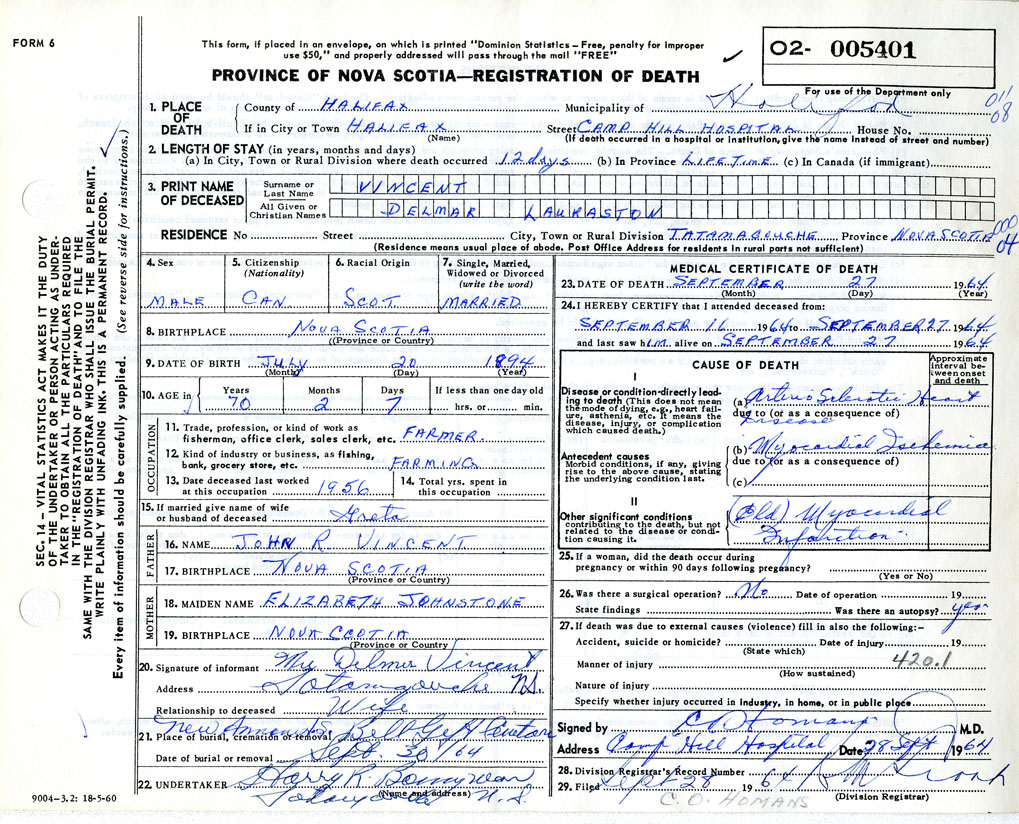 FORM 6
This form, if placed in an envelope, on which is printed "Dominion Statistics – Free, penalty for improper
use $50," and properly addressed will pass through the mail "FREE"
PROVINCE OF NOVA SCOTIA—REGISTRATION OF DEATH
02- 005401
For use of the Department only
011
08
1. PLACE OF DEATH
County of HALIFAX Municipality of
If in City or Town HALIFAX Street CAMP HILL HOSPITAL House No.
(Name) (If death occurred in a hospital or institution, give the name instead of street and number)
2. LENGTH OF STAY (in years, months and days)
(a) In City, Town or Rural Division where death occurred 12 days (b) In Province LIFETIME (c) In Canada (if immigrant)
3. PRINT NAME OF DECEASED
Surname or Last Name VINCENT
All Given or Christian Names DELMAR LAURASTON
RESIDENCE No Street City, Town or Rural Division TATAMAGOUCHE Province NOVA SCOTIA
000
04
(Residence means usual place of abode. Post Office Address for residents in rural parts not sufficient)
4. Sex MALE
5. Citizenship (Nationality) CAN
6. Racial Origin SCOT
7. Single, Married, Widowed or Divorced (write the word) MARRIED
8. BIRTHPLACE NOVA SCOTIA
(Province or Country)
9. DATE OF BIRTH JULY 20 1894
(Month) (Day) (Year)
10. AGE in Years 70 Months 2 Days 7 If less than one day old hrs. or min.
OCCUPATION
11. Trade, profession, or kind of work as
fisherman, office clerk, sales clerk, etc. FARMER.
12. Kind of industry or business, as fishing,
bank, grocery store, etc. FARMING
13. Date deceased last worked at this occupation 1956
14. Total yrs. spent in this occupation
15. If married give name of wife
or husband of deceased Greta
FATHER
16. NAME JOHN R. VINCENT
17. BIRTHPLACE NOVA SCOTIA
(Province or Country)
MOTHER
18. MAIDEN NAME ELIZABETH JOHNSTONE
19. BIRTHPLACE NOVA SCOTIA
(Province or Country
20. Signature of informant Mrs Delmer Vincent
Address Tatamagouche N.S.
Relationship to deceased Wife
21. Place of burial, cremation or removal
Date of burial or removal Sept. 30/64
22. UNDERTAKER Harry R.
(Name and address) N.S.
MEDICAL CERTIFICATE OF DEATH
23. DATE OF DEATH SEPTEMBER 27 1964
(Month) (Day) (Year)
24. I HEREBY CERTIFY that I attended deceased from:
SEPTEMBER 16 1964 to SEPTEMBER 27 1964
and last saw him alive on SEPTEMBER 27 1964
CAUSE OF DEATH
Approximate interval between onset and death
I
Disease or condition directly leading to death (This does not mean
the mode of dying, e.g., heart failure, asthenia, etc. It means the
disease, injury, or complication
which caused death.)
(a) Arterio Sclerotic Heart
due to (or as a consequence of)
Disease
Antecedent causes
Morbid conditions, if any, giving
rise to the above cause, stating
the underlying condition last.
(b) Myocardial Ischemia
due to (or as a consequence of)
(c)
II
Other significant conditions
contributing to the death, but not
related to the disease or condition causing it.
(Old) Myocardial
Infarction
25. If a woman, did the death occur during
pregnancy or within 90 days following pregnancy?
(Yes or No)
26. Was there a surgical operation? No Date of operation 19
State findings Was there an autopsy? yes
27. If death was due to external causes (violence) fill in also the following:-
Accident, suicide or homicide? Date of injury 19
(State which)
420.1
Manner of injury
(How sustained)
Nature of injury
Specify whether injury occurred in industry, in home, or in public place
Signed by C.O. Homans M.D.
Address Camp Hill Hospital Date 28 Sept 1964
28. Division Registrar's Record Number
29. Filed Sept 28 1964
(Division Registrar)
C. O. HOMANS
9004–3.2: 18-5-60
SEC. 14—VITAL STATISTICS ACT MAKES IT THE DUTY
OF THE UNDERTAKER OR PERSON ACTING AS UNDERTAKER TO OBTAIN ALL THE PARTICULARS REQUIRED
IN THE "REGISTRATION OF DEATH" AND TO FILE THE
SAME WITH THE DIVISION REGISTRAR WHO SHALL ISSUE THE BURIAL PERMIT.
WRITE PLAINLY WITH UNFADING INK. THIS IS A PERMANENT RECORD.
Every item of information should be carefully supplied. (See reverse side for instructions.)